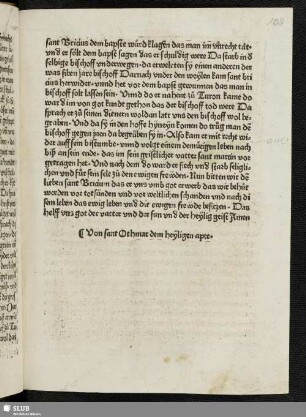 108
sant Bricius dem bapste würd klagen das man im vnrecht tät
vnd er solt dem bapst sagen das er schuldig were Da starb in d
selbige bischoff vnderwegen· da erwelten sy einen anderen der
was siben jare bischoff Darnach vnder den weylen kam sant bri
cius herwider· vnnd het vor dem bapst gewunnen das man in
bischoff solt lassen sein· Vnnd do er nahent zů Turon kame do
ward im von got kundt gethon das der bischoff tod were Da
sprach er zů seinen dienern woldan latt vns den bischoff wol be
graben· Vnd da sy in den hoffe hinein komen do trůg man de
bischoff gegen jnen da begrůben sy in· Also kam er mit recht wi
der auff sein bistumbe· vnnd volgt einem demütigen leben nach
biß an sein ende· das im sein geystlicher vatter sant martin vor
getragen het· Vnd nach dem do ward er siech vnd starb seligk
lichen vnd für sein sele zů den ewigen freüden· Nun bitten wir dē
lieben sant Bricium das er vns vmb got erwerb das wir behüt
werden vor tot sünden vnd vor weltlichen schanden vnd nach di
sem leben das ewig leben vnd die ewigen freüde besitzen· Das
helff vns got der vatter vnd der sun vnd der heylig geist Amen
¶ Von sant Othmar dem heyligen apte·
SLUB